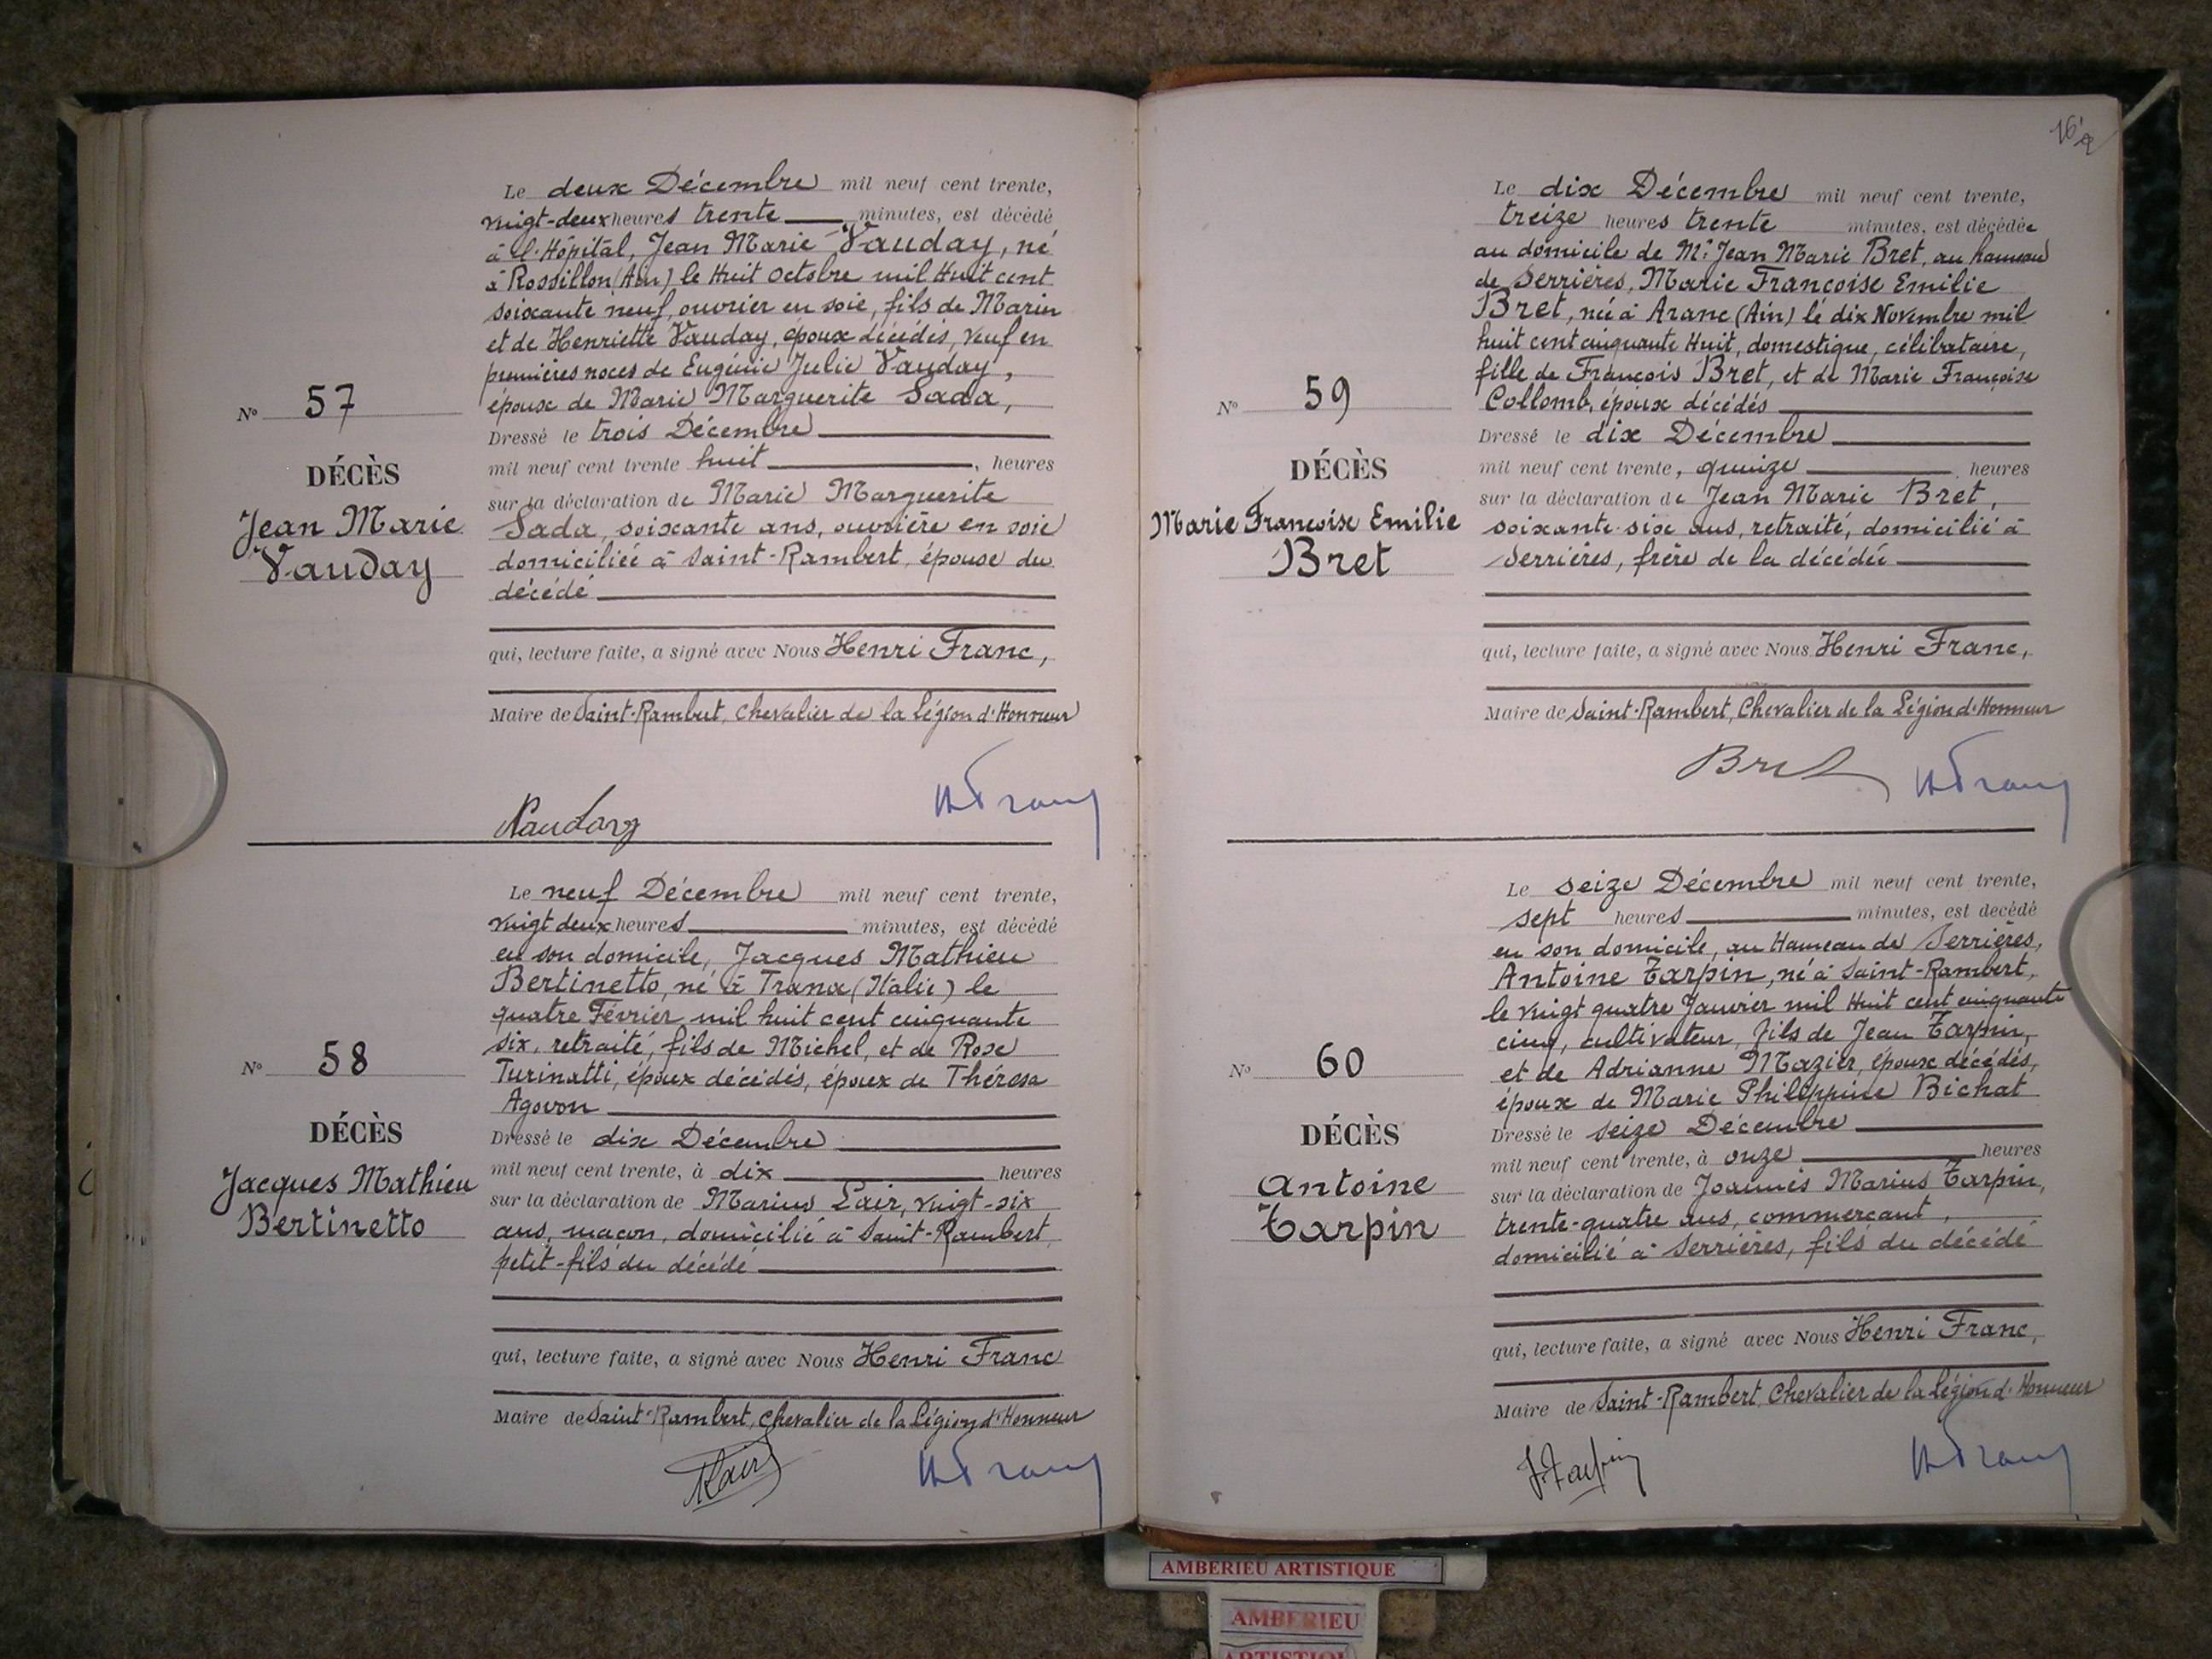 Le deux Décembre mil neuf cent trente,
vingt-deux heures trente minutes, est décédé
à l'Hôpital, Jean Marie Vauday, né
à Rossillon (Ain) le Huit Octobre mil Huit cent
soixante neuf, ouvrier en soie, fils de Marin
et de Henriette Vauday, époux décédés, veuf en
premières noces de Eugénie Julie Vauday,
époux de Marie Marguerite Sada,
N° 57
DÉCÈS
Jean Marie
Vauday
Dressé le trois Décembre
mil neuf cent trente huit, heures
sur la déclaration de Marie Marguerite
Sada, soixante ans, ouvrière en soie
domiciliée à Saint-Rambert, épouse du
décédé
qui, lecture faite, a signé avec Nous Henri Franc,
Maire de Saint-Rambert, Chevalier de la Légion d'Honneur
Vauday HFranc
Le neuf Décembre mil neuf cent trente,
vingt deux heures minutes, est décédé
en son domicile, Jacques Mathieu
Bertinetto, né à Trana (Italie) le
quatre Février mil huit cent cinquante
six, retraité, fils de Michel, et de Rose
Turinatti, époux décédés, époux de Thérésa
Agovon
N° 58
DÉCÈS
Jacques Mathieu
Bertinetto
Dressé le dix Décembre
mil neuf cent trente, à dix heures
sur la déclaration de Marius Lair, vingt-six
ans, maçon, domicilié à Saint-Rambert,
petit-fils du décédé
qui, lecture faite, a signé avec Nous Henri Franc
Maire de Saint-Rambert, Chevalier de la Légion d'Honneur
MLair HFranc
Le dix Décembre mil neuf cent trente,
treize heures trente minutes, est décédée
au domicile de Mr Jean Marie Bret, au hameau
de Serrières, Marie Françoise Emilie
Bret, née à Aranc (Ain) le dix Novembre mil
huit cent cinquante Huit, domestique, célibataire,
fille de François Bret, et de Marie Françoise
Collomb, époux décédés
N° 59
DÉCÈS
Marie Françoise Emilie
Bret
Dressé le dix Décembre
mil neuf cent trente, quinze heures
sur la déclaration de Jean Marie Bret,
soixante-six ans, retraité, domicilié à
Serrières, frère de la décédée
qui, lecture faite, a signé avec Nous Henri Franc,
Maire de Saint-Rambert, Chevalier de la Légion d'Honneur
Bret HFranc
Le seize Décembre mil neuf cent trente,
sept heures minutes, est décédé
en son domicile, au Hameau de Serrières,
Antoine Tarpin, né à Saint-Rambert,
le vingt quatre Janvier mil Huit cent cinquante
cinq, cultivateur, fils de Jean Tarpin,
et de Adrianne Mazier, époux décédés,
époux de Marie Philippine Bichat
N° 60
DÉCÈS
Antoine
Tarpin
Dressé le seize Décembre
mil neuf cent trente, à onze heures
sur la déclaration de Joannès Marius Tarpin,
trente-quatre ans, commerçant,
domicilié à Serrières, fils du décédé
qui, lecture faite, a signé avec Nous Henri Franc,
Maire de Saint-Rambert, Chevalier de la Légion d'Honneur
J.Tarpin HFranc
AMBERIEU ARTISTIQUE
AMBERIEU